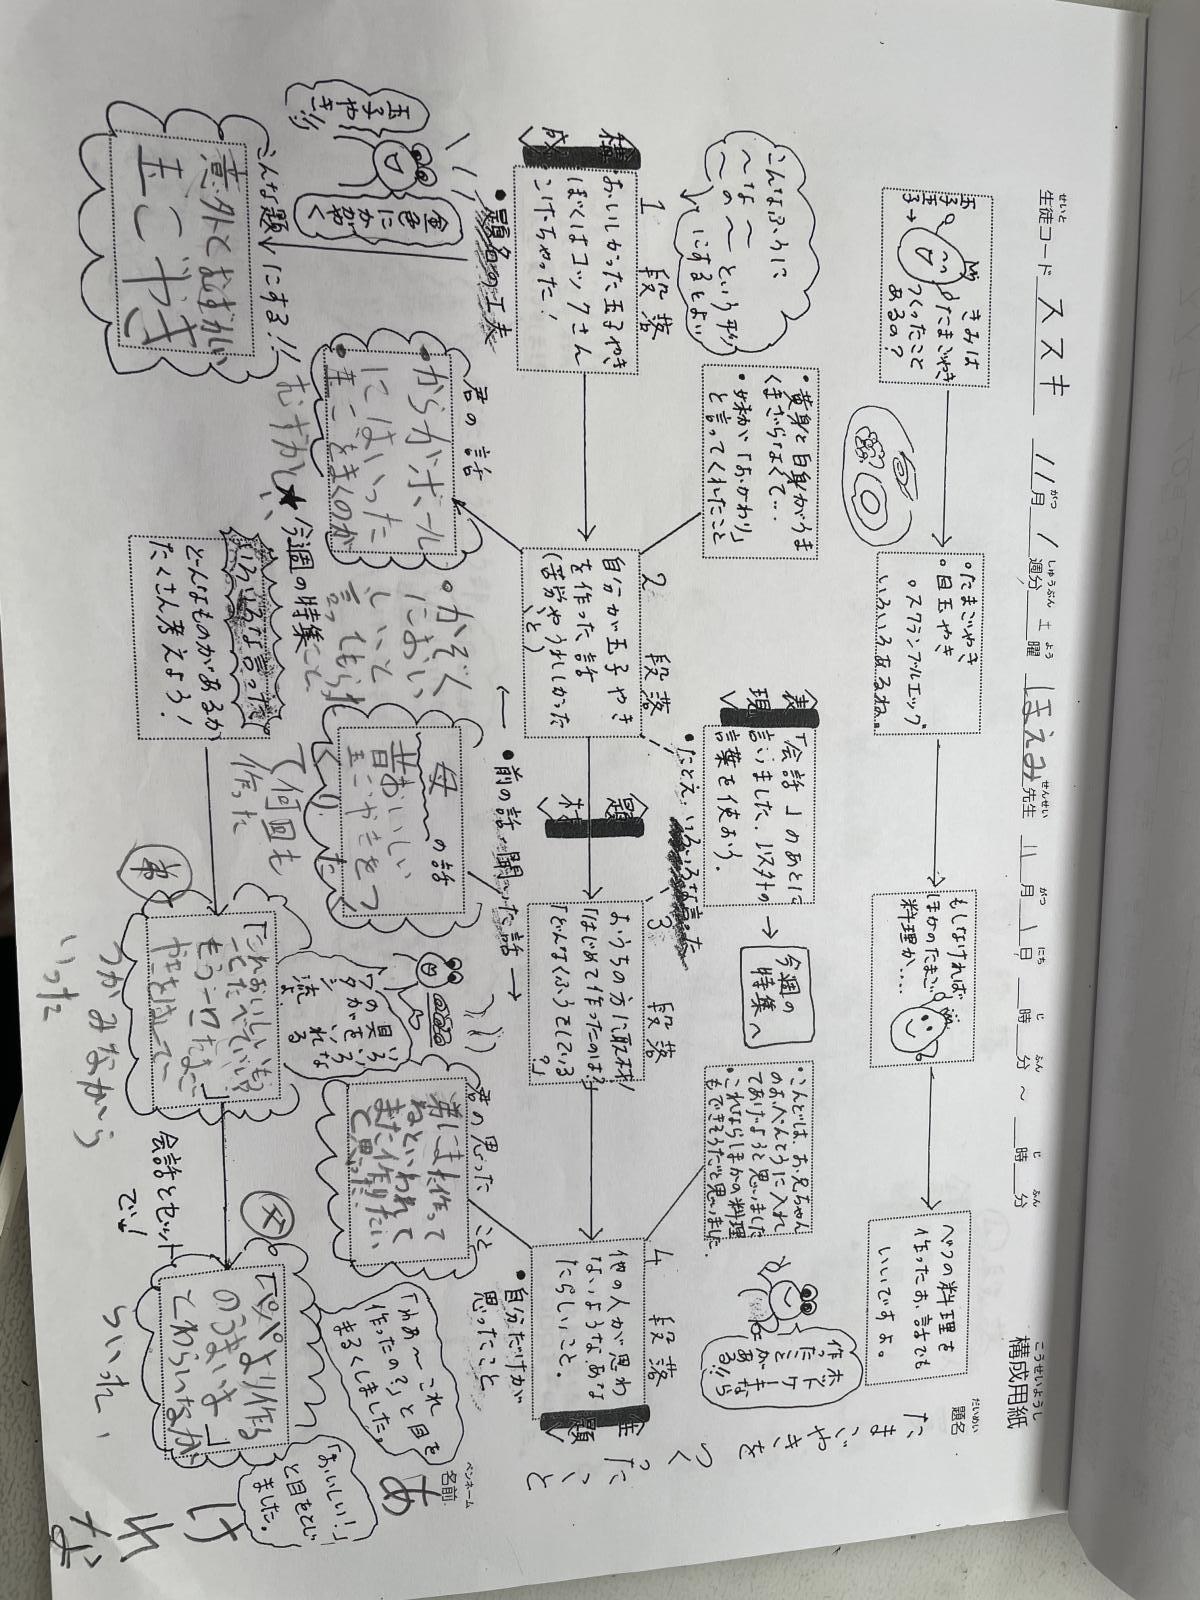 構成用紙
こうせいようし
生徒コード ススキ 11月 1週分 土曜 ほえみ先生 11月1日 __時__分～__時__分
題名 たまごやきをつくったこと
ペンネーム
名前 あけれな
きみは
たまごやき
つくったこと
あるの？
・たまごやき
・目玉やき
・スクランブルエッグ
いろいろあるね。
もしなければ
ほかのたまご
料理か…
べつの料理を
作ったお話でも
いいですよ。
こんなふうに
～な～
～の～という形
にするとよい
・黄身と白身がうま
くまざらなくて…
・妹が「おかわり」
と言ってくれたこと
表現
「会話」のあとに
言いました、以外の
言葉を使おう。
今週の
特集へ
・こんどは、お兄ちゃん
のおべんとうに入れ
てあげようと思いました
・これならほかの料理
もできそうだと思いました。
ホットケーキなら
作ったことが
ある!!
1段落
2段落
3段落
4段落
構成
おいしかった玉子やき
ぼくはコックさん
こげちゃった！
自分が玉子やき
を作った話
(苦労やうれしかった
こと)
題材
おうちの方に取材
「はじめて作ったのは？」
「どんなくふうをしている
？」
他の人が思わ
ないようなあな
たらしいこと。
主題
・題名の工夫
・前の話・聞いた話
・自分だけが
思ったこと
玉子やき!!
金色にかがやく
君の話
・からがボール
にはいった
・玉ごをまくのが
むずかしい
・かぞく
においし
いと
言ってもらえ
母の話
昔おいしい
玉ごやきをつ
くりた
て何回も
作った
君の思ったこと
弟にまた作って
ねといわれて
また作りたい
と思った
こんな題にする!!
意外とむずかしい
玉ごやき
★今週の特集
いろいろな言った
どんなものがあるか
たくさん考えよう！
弟
「これおいしいも
っとたべていい？
もう一口たまご
やきをはしで
つかみながら
いった
いろいろな
具をいれる
のがワタシ流よ
会話とセット
でい！
父
「パパより作る
のうまいな」
とわらいなが
らいった。
「わぁ～これ
作ったの？」と目を
まるくしました。
「おいしい！」
と目をとじ
ました。